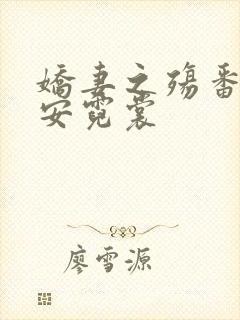 嬌妻之殤番
安霓裳
廖雪源